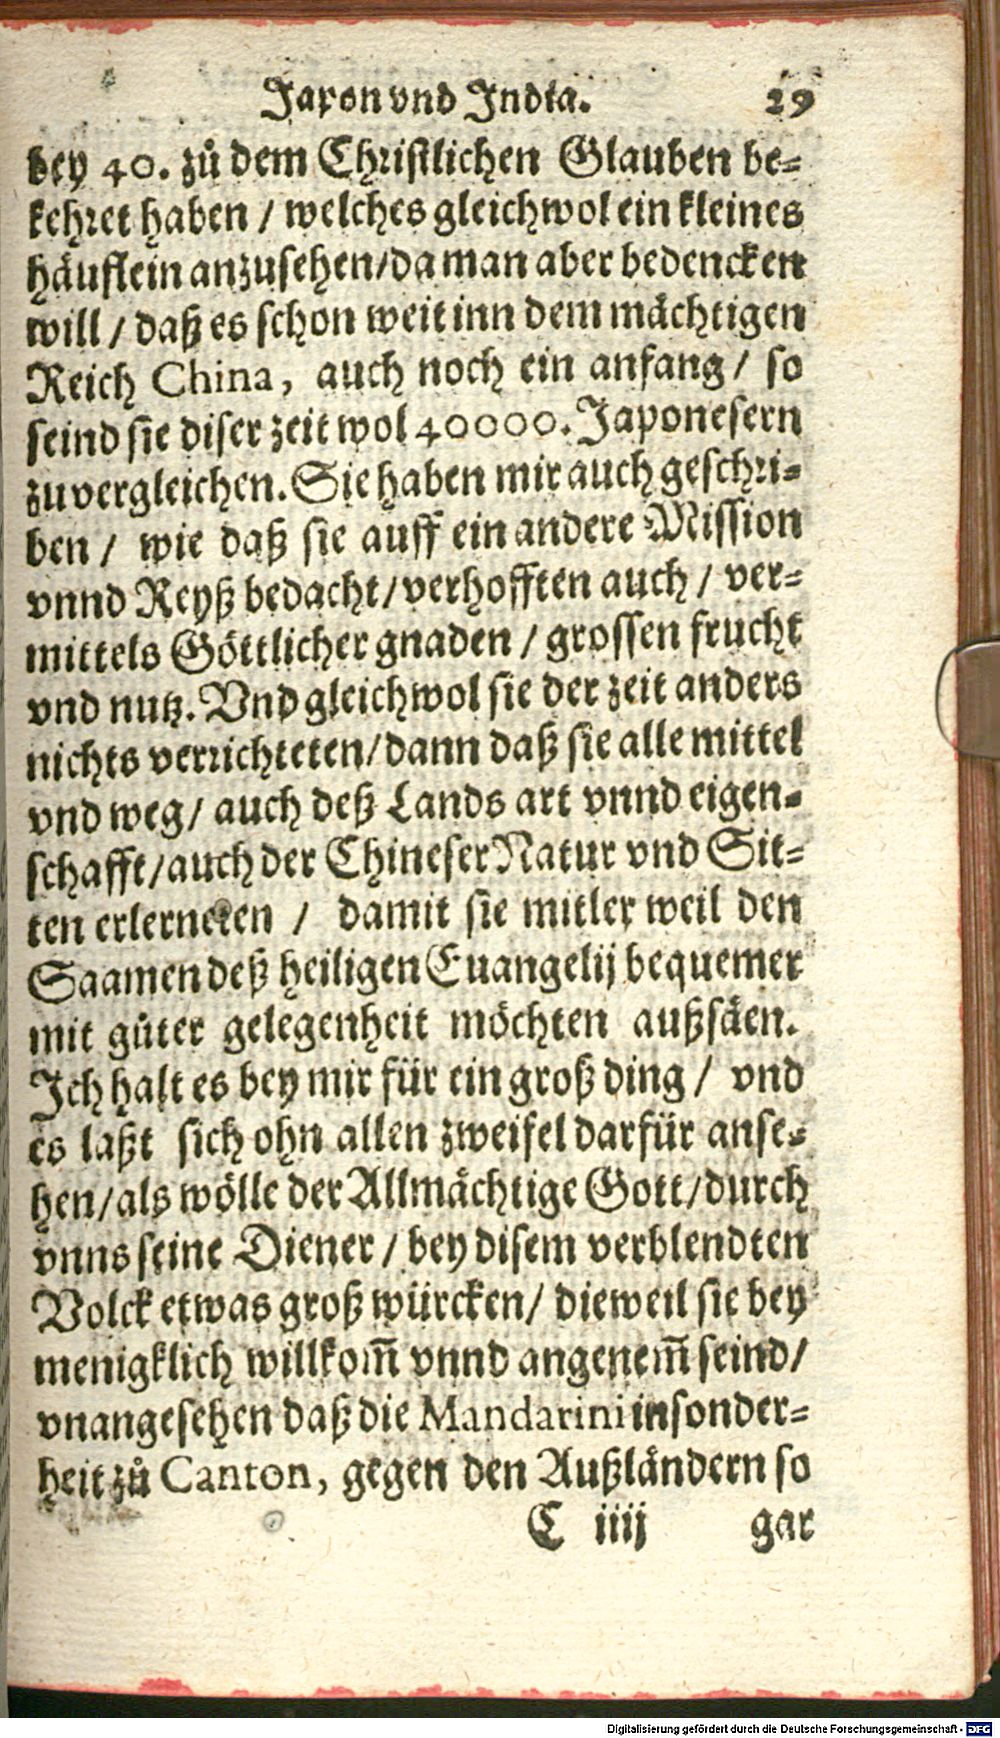 Japon vnd India. 29
bey 40. zů dem Christlichen Glauben be-
kehret haben / welches gleichwol ein kleines
häuflein anzusehen/da man aber bedencken
will / daß es schon weit inn dem mächtigen
Reich China, auch noch ein anfang / so
seind sie diser zeit wol 40000. Japonesern
zuvergleichen. Sie haben mir auch geschri-
ben / wie daß sie auff ein andere Mission
vnnd Reyß bedacht/verhofften auch / ver-
mittels Göttlicher gnaden / grossen frucht
vnd nutz. Vnd gleichwol sie der zeit anders
nichts verrichteten/dann daß sie alle mittel
vnd weg/ auch deß Lands art vnnd eigen-
schafft/auch der Chineser Natur vnd Sit-
ten erlerneten / damit sie mitler weil den
Saamen deß heiligen Euangelij bequemer
mit gůter gelegenheit möchten außsäen.
Ich halt es bey mir für ein groß ding / vnd
es laßt sich ohn allen zweifel darfür anse-
hen/als wölle der Allmächtige Gott/durch
vnns seine Diener / bey disem verblendten
Volck etwas groß würcken/ dieweil sie bey
menigklich willkom̃ vnnd angenem̃ seind/
vnangesehen daß die Mandarini insonder-
heit zů Canton, gegen den Außländern so
C iiij gar
Digitalisierung gefördert durch die Deutsche Forschungsgemeinschaft - DFG